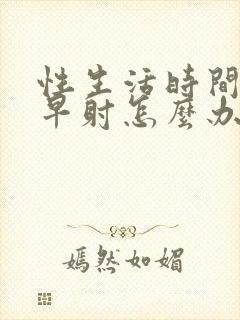 性生活時間
早射怎麼办
嫣然如媚